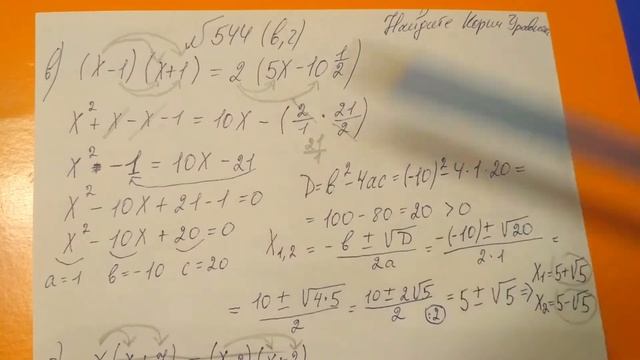 №544 (в,г)
Найдите Корни Уравнения
в) (x-1)(x+1) = 2(5x-10 1/2)
x² + x - x - 1 = 10x - (2/1 · 21/2)
21/1
x² - 1 = 10x - 21
x² - 10x + 21 - 1 = 0
x² - 10x + 20 = 0
a=1 b=-10 c=20
D = b² - 4ac = (-10)² - 4·1·20 =
= 100 - 80 = 20 > 0
x₁,₂ = -b ± √D / 2a = -(-10) ± √20 / 2·1 =
= 10 ± √4·5 / 2 = 10 ± 2√5 / 2 :2 = 5 ± √5 ⇒ x₁ = 5+√5
x₂ = 5-√5